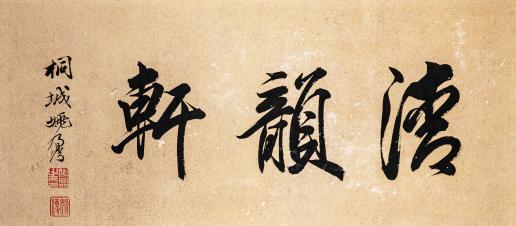 清韻軒
桐城姚鼐